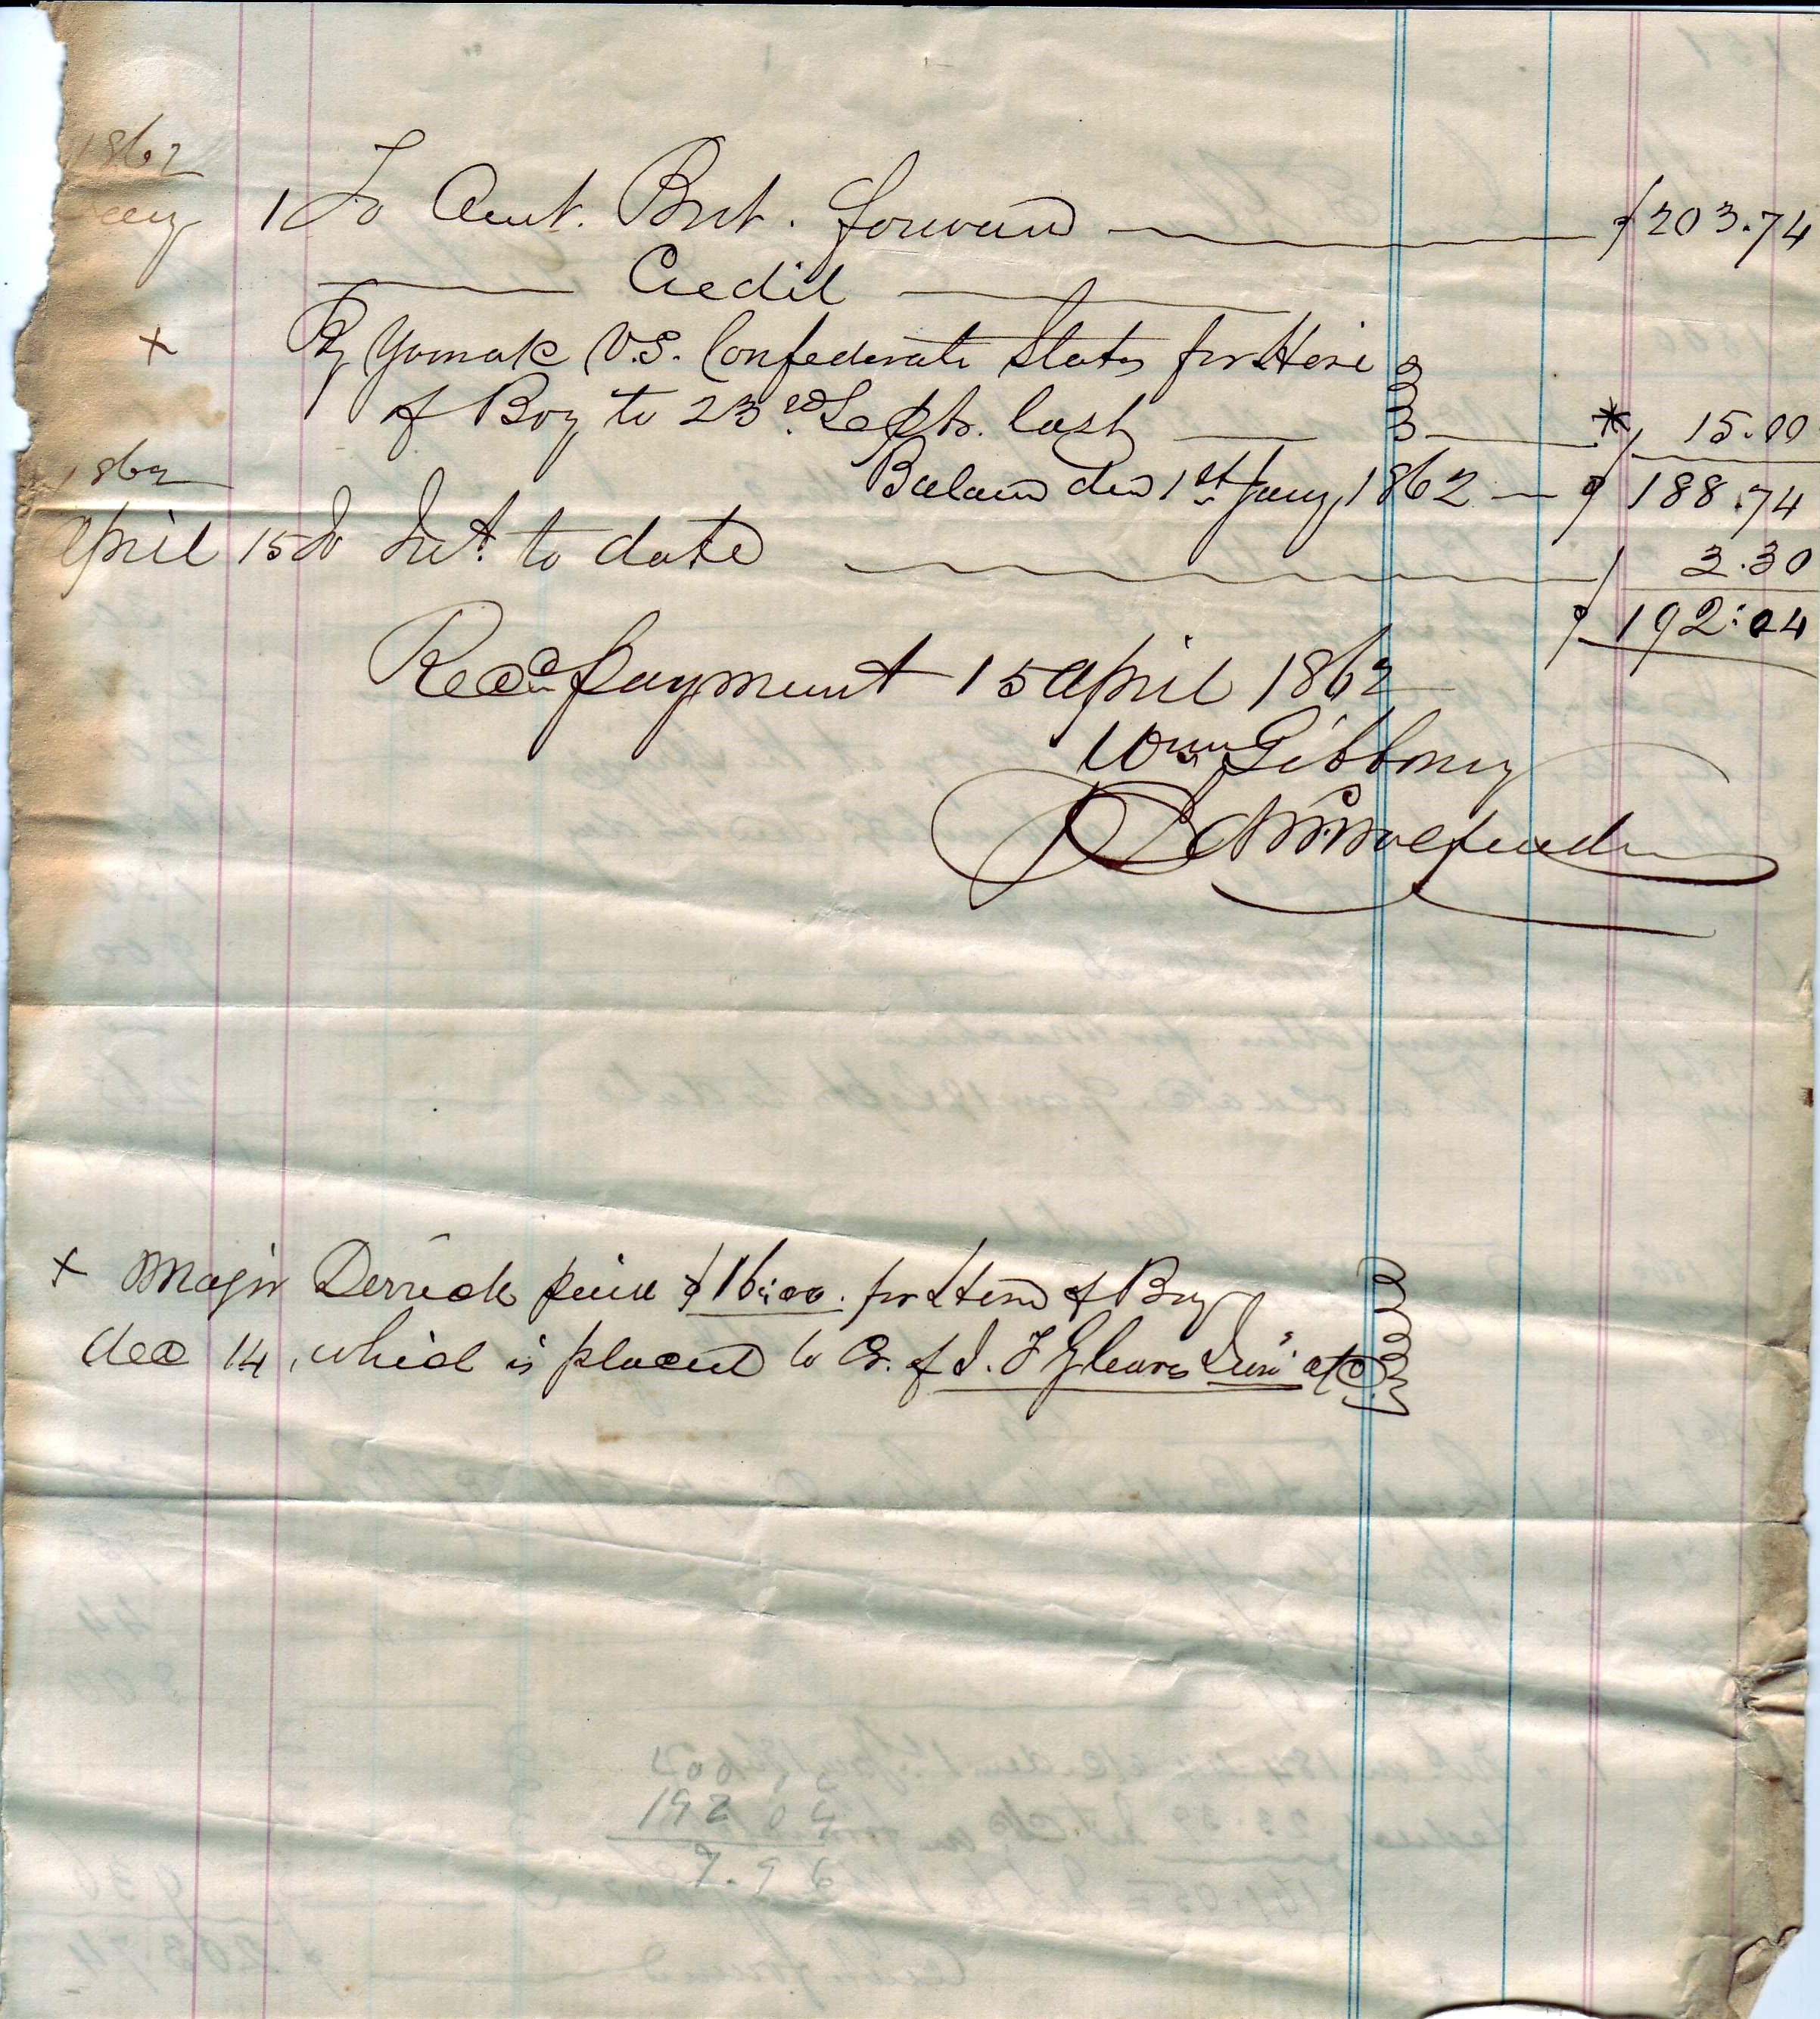 1862
Jany 1 To Amt. Brt. forward $203.74
Credit
+ By Yr mak V.S. Confederate States for Hire
of Boy to 23rd Sept. last * 15.00
Balance due 1st Jany, 1862 $188.74
1862
April 15 To Int. to date 3.30
$192.04
Recd payment 15 April 1862
Wm Gibboney
+ Major Derrick paid $16.00. for Hire of Boy
dec 14, which is placed to Cr. of J. F Gleaves Junr a/c
200
192 04
7.96